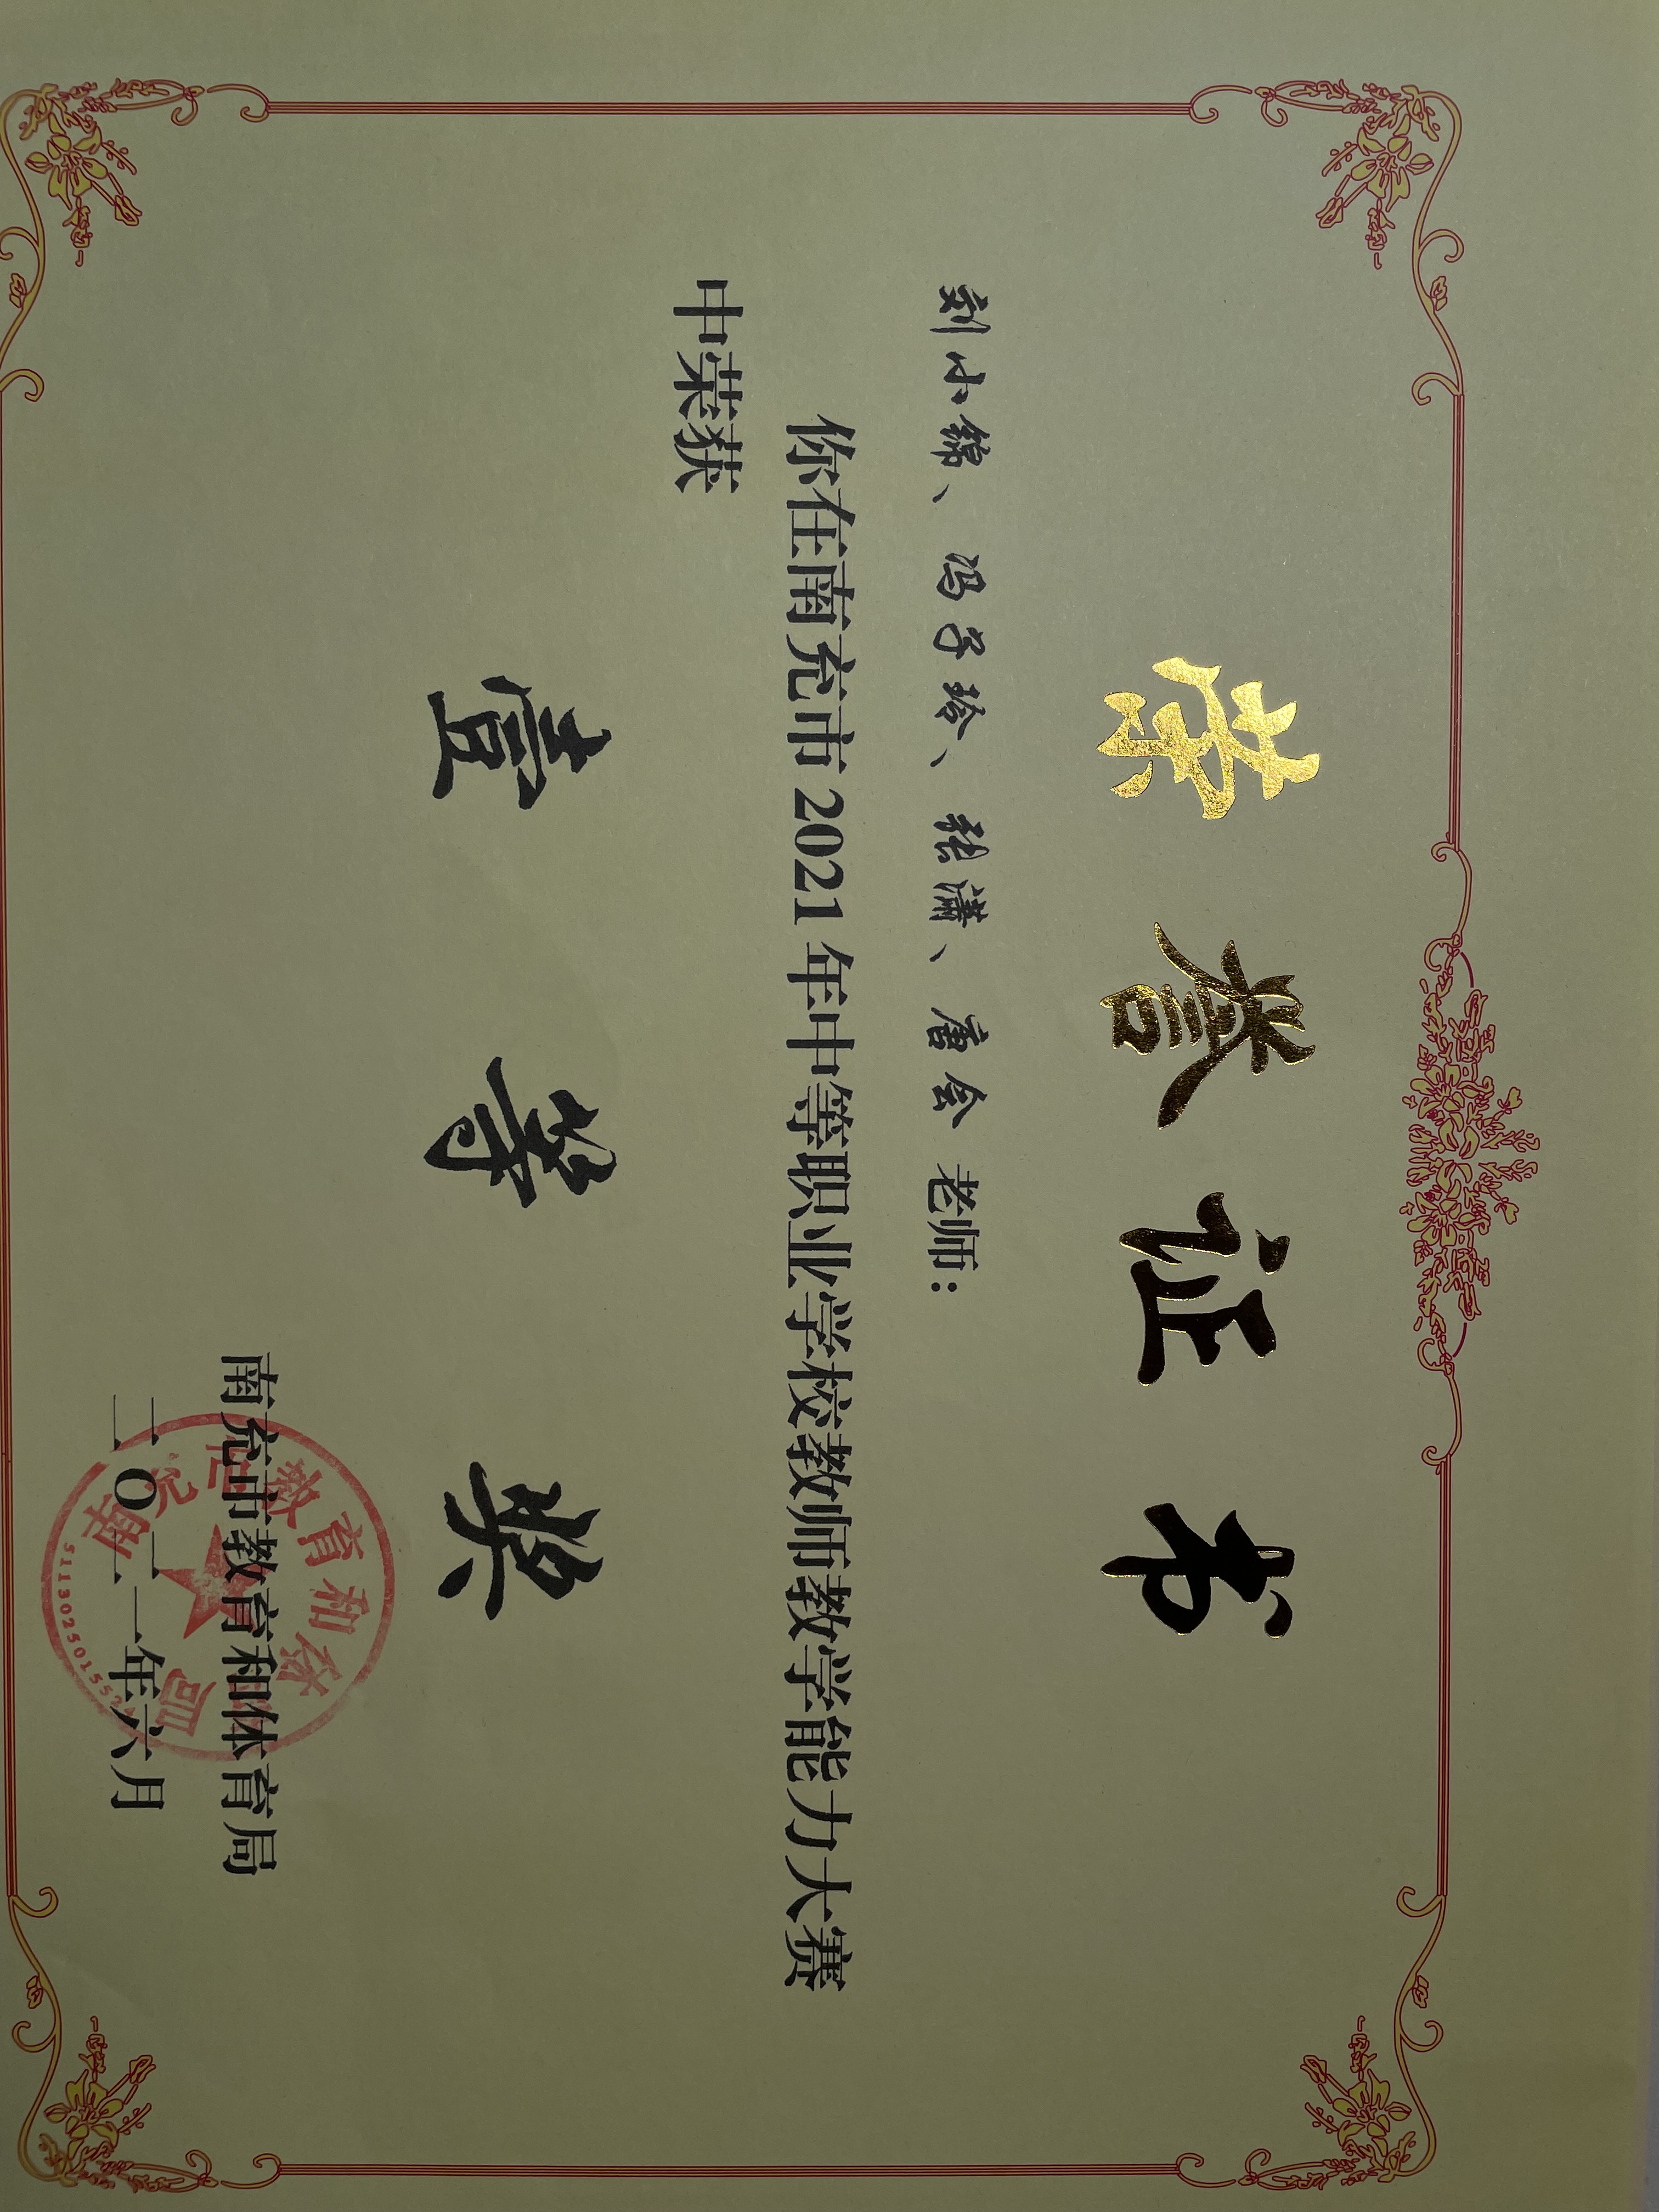 荣誉证书
刘小锦、冯子玲、张潇、唐会 老师：
你在南充市 2021 年中等职业学校教师教学能力大赛
中荣获
壹等奖
南充市教育和体育局
二〇二一年六月
南充市教育和体育局